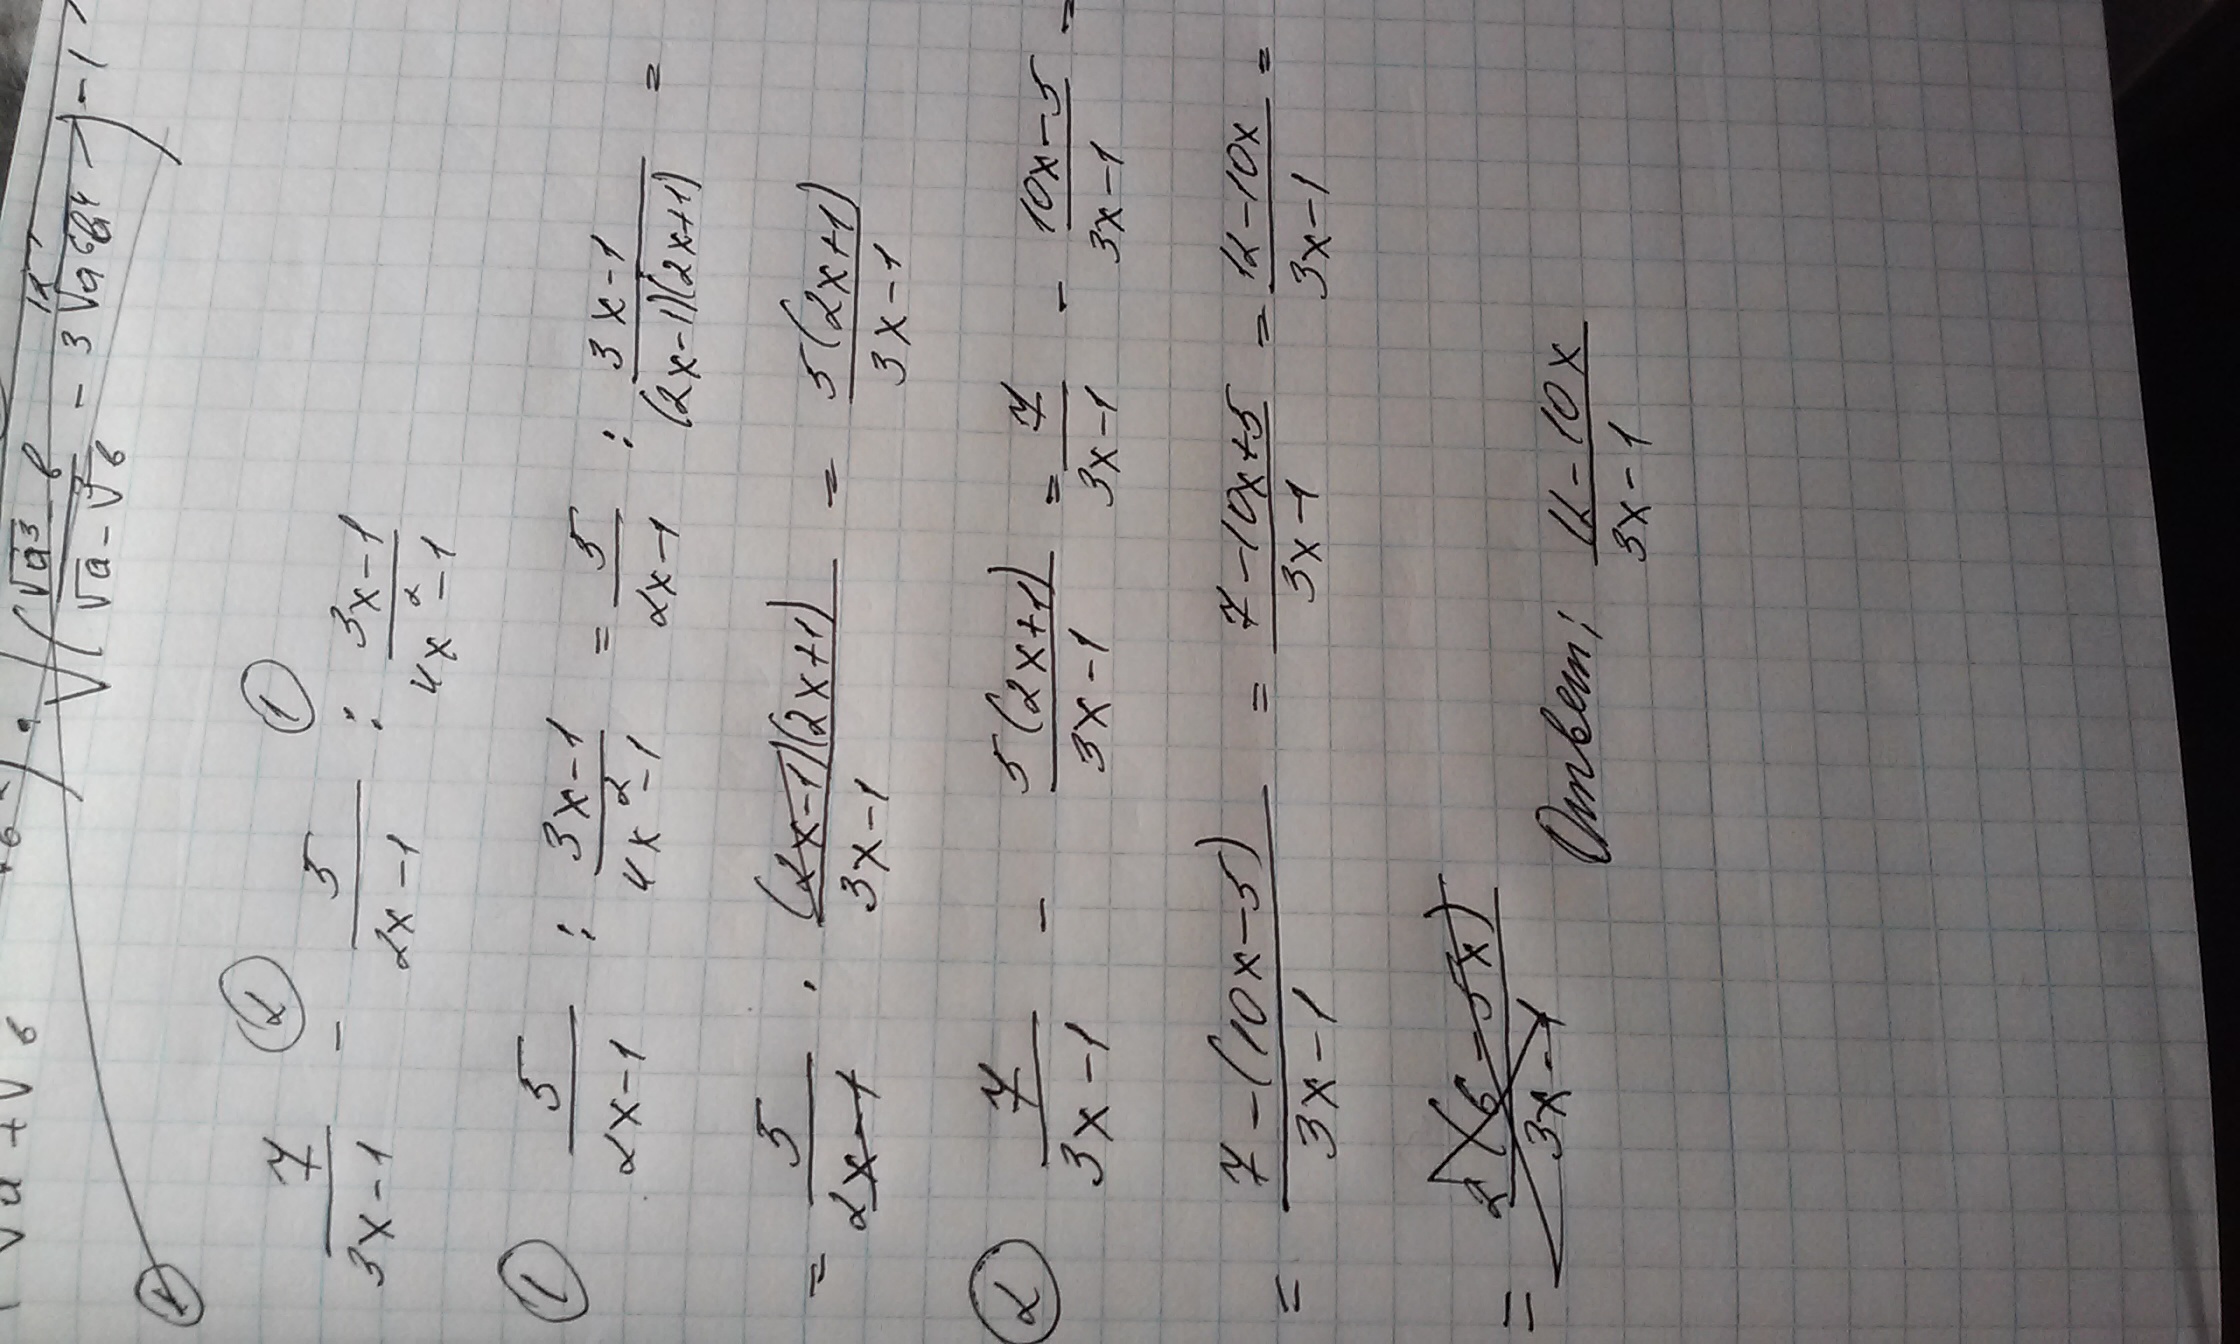 √a + √b
(√a³ - b / √a - ³√b - 3 ¹²√a⁶b⁴) - 1
② ①
7/(3x-1) - 5/(2x-1) : (3x-1)/(4x²-1)
① 5/(2x-1) : (3x-1)/(4x²-1) = 5/(2x-1) : (3x-1)/((2x-1)(2x+1)) =
= 5/(2x-1) · ((2x-1)(2x+1))/(3x-1) = 5(2x+1)/(3x-1)
② 7/(3x-1) - 5(2x+1)/(3x-1) = 7/(3x-1) - (10x-5)/(3x-1) =
= (7-(10x-5))/(3x-1) = (7-10x+5)/(3x-1) = (12-10x)/(3x-1) =
= 2(6-5x)/(3x-1)
Ответ: (12-10x)/(3x-1)